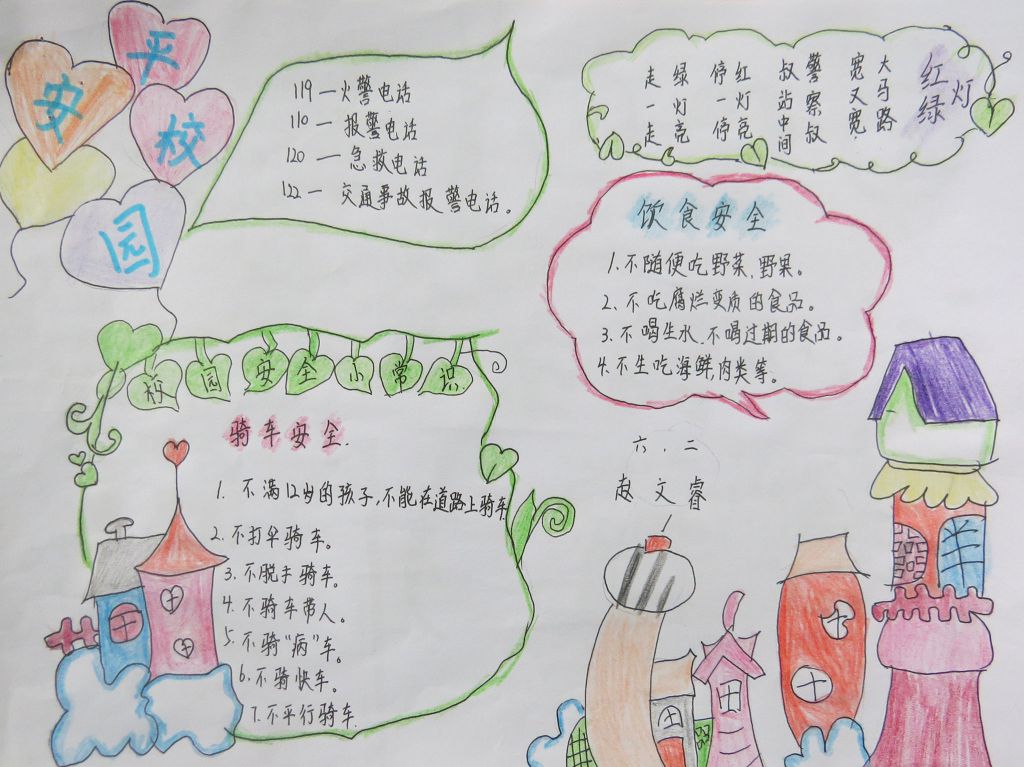 平安校园
119—火警电话
110—报警电话
120—急救电话
122—交通事故报警电话。
红绿灯
大马路
宽又宽
警察叔
叔站中间
红灯亮
停一停
绿灯亮
走一走
饮食安全
1、不随便吃野菜、野果。
2、不吃腐烂变质的食品。
3、不喝生水、不喝过期的食品。
4、不生吃海鲜,肉类等。
校园安全小常识
骑车安全.
1、不满12岁的孩子,不能在道路上骑车
2、不打伞骑车。
3、不脱手骑车。
4、不骑车带人。
5、不骑“病”车。
6、不骑快车。
7、不平行骑车.
六.二
赵文睿